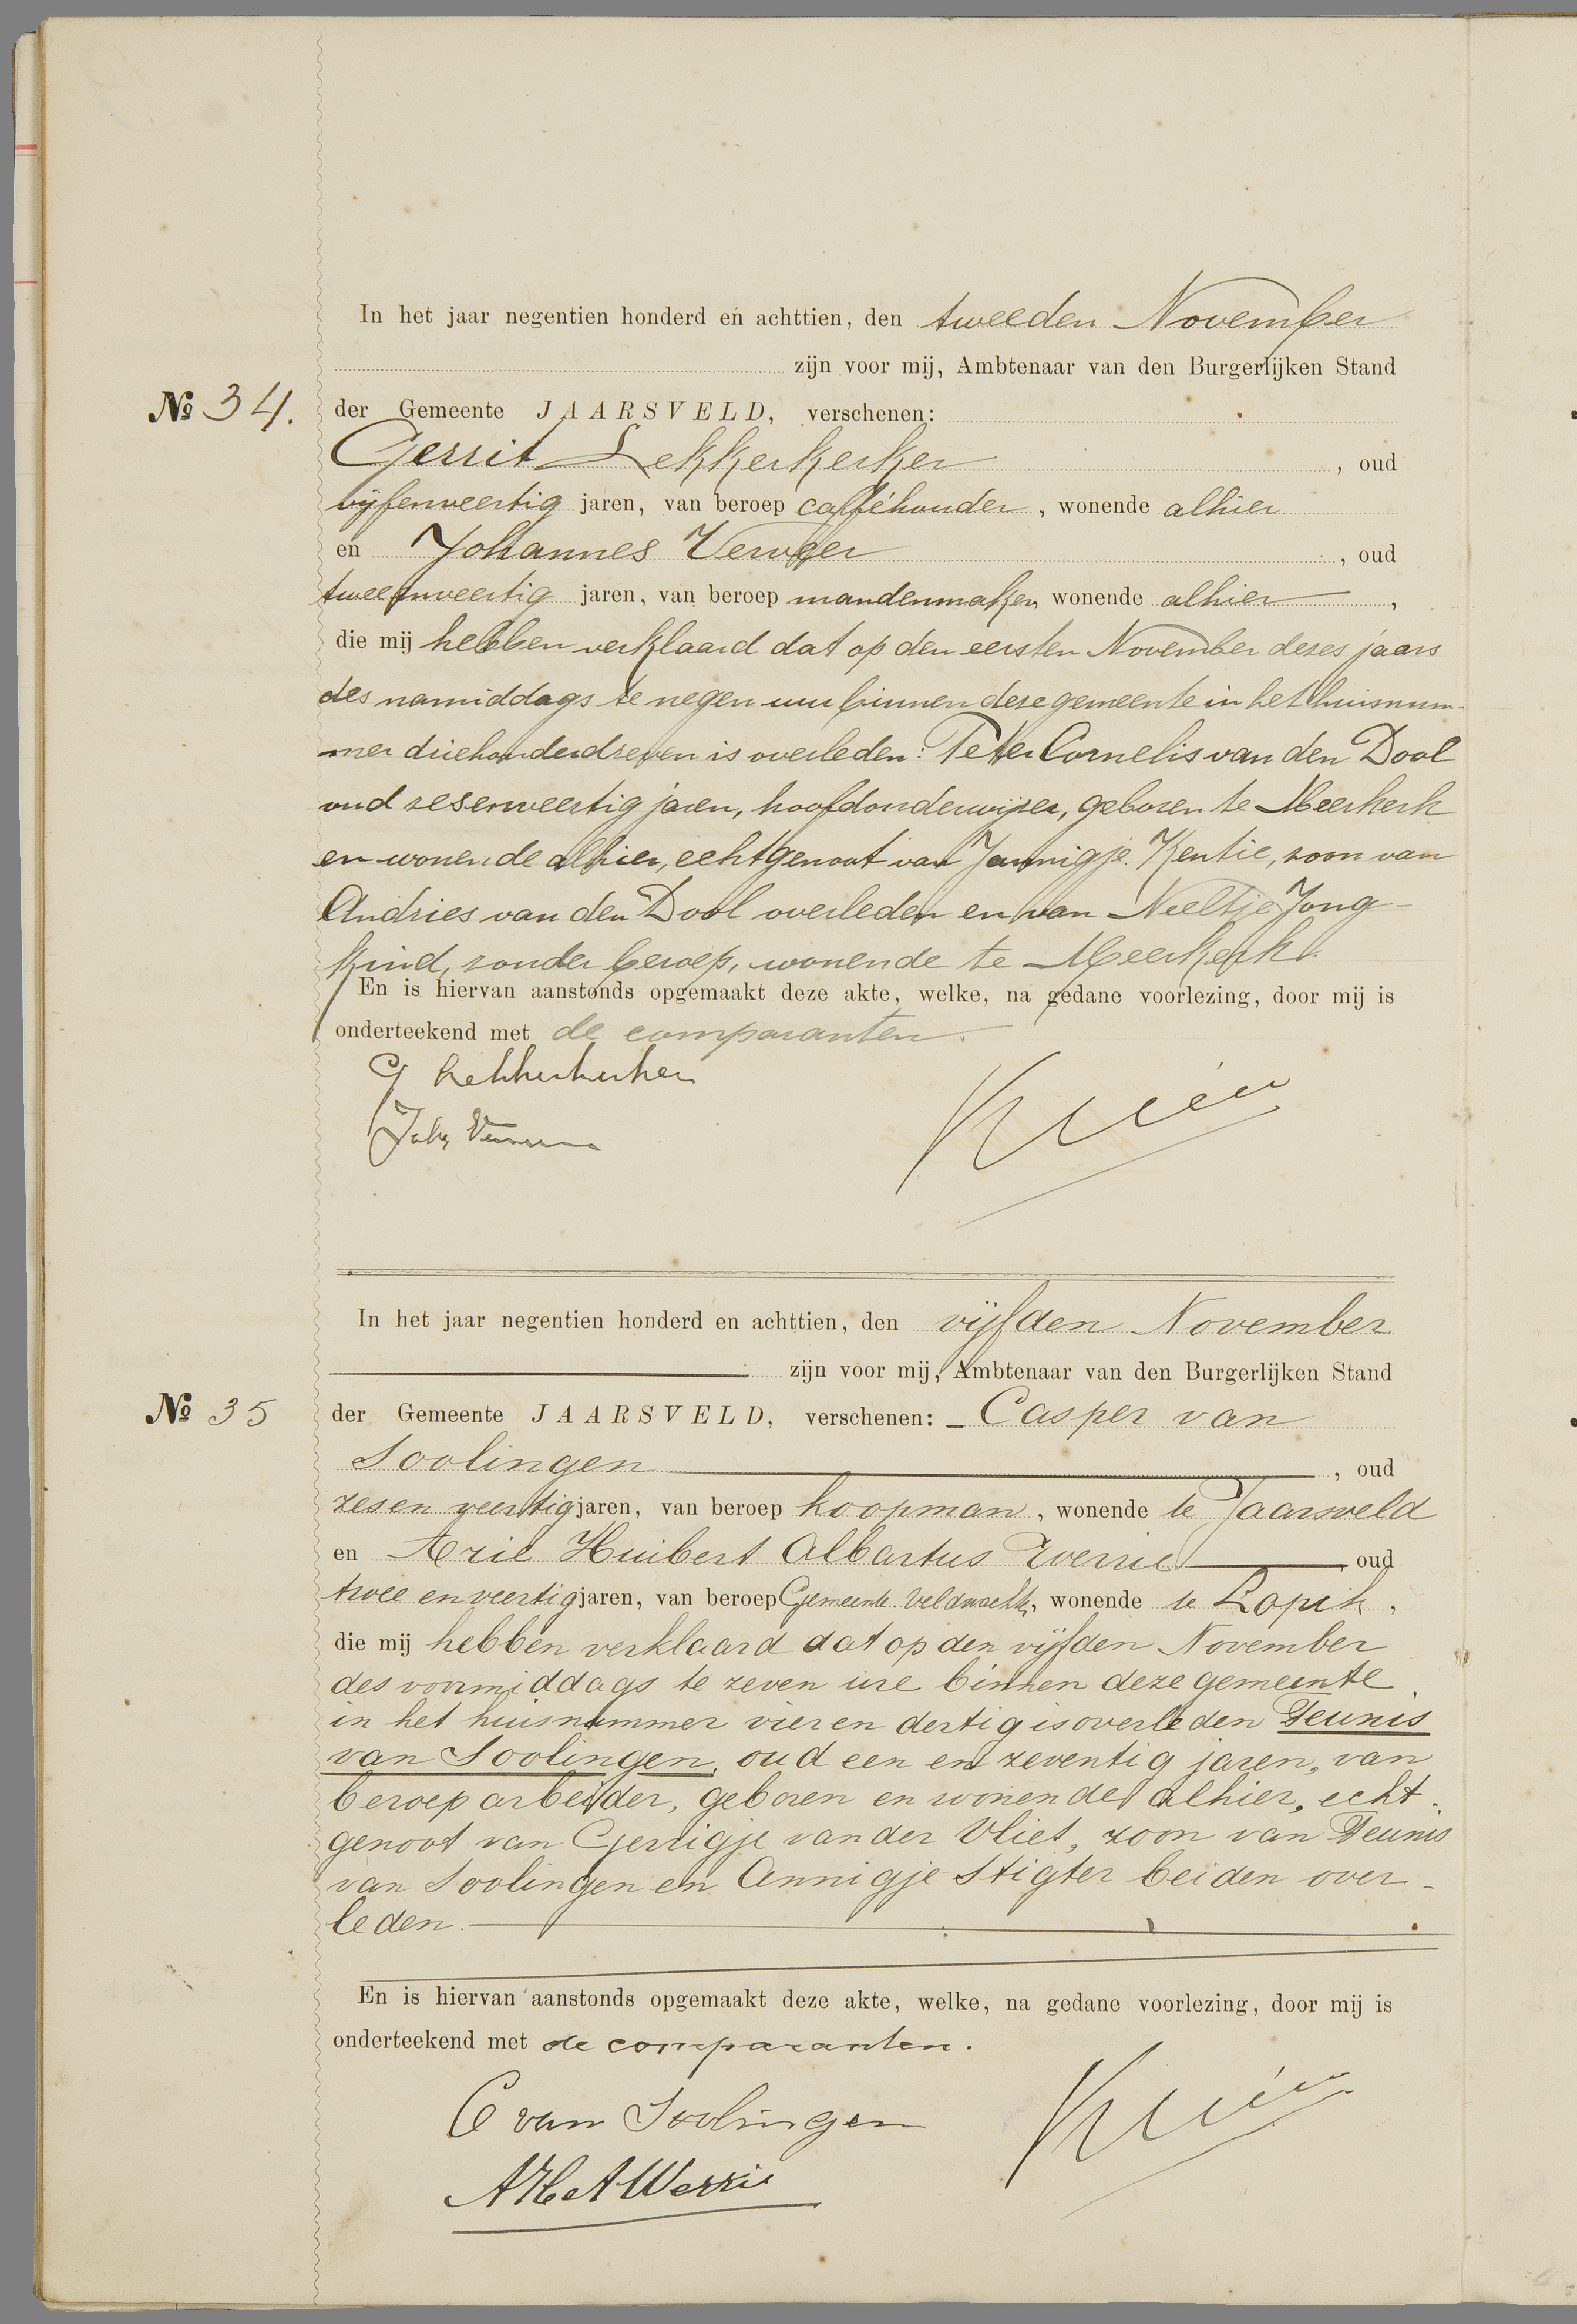 In het jaar negentien honderd en achttien, den tweeden November
zijn voor mij, Ambtenaar van den Burgerlijken Stand
№ 34. der Gemeente JAARSVELD, verschenen:
Gerrit Lekkerkerker, oud
vijfenveertig jaren, van beroep caféhouder, wonende alhier
en Johannes Verweer, oud
tweeenveertig jaren, van beroep mandenmaker, wonende alhier,
die mij hebben verklaard dat op den eersten November dezes jaars
des namiddags te negen uur binnen deze gemeente in het huisnum-
mer driehonderdzeven is overleden: Peter Cornelis van den Dool
oud zesenveertig jaren, hoofdonderwijzer, geboren te Meerkerk
en wonende alhier, echtgenoot van Jannigje Kentie, zoon van
Andries van den Dool overleden en van Neeltje Jong-
kind, zonder beroep, wonende te Meerkerk.
En is hiervan aanstonds opgemaakt deze akte, welke, na gedane voorlezing, door mij is
onderteekend met de comparanten.
G Lekkerkerker
In het jaar negentien honderd en achttien, den vijfden November
zijn voor mij, Ambtenaar van den Burgerlijken Stand
№ 35 der Gemeente JAARSVELD, verschenen: Casper van
Soolingen, oud
zesen veertig jaren, van beroep koopman, wonende te Jaarsveld
en Arie Huibert Albartus Werrie oud
twee en veertig jaren, van beroep Gemeente Veldwachter, wonende te Lopik,
die mij hebben verklaard dat op den vijfden November
des voormiddags te zeven ure binnen deze gemeente
in het huisnummer vier en dertig is overleden Teunis
van Soolingen, oud een en zeventig jaren, van
beroep arbeider, geboren en wonende alhier, echt-
genoot van Gerrigje van der Vliet, zoon van Teunis
van Soolingen en Annigje Stigter beiden over-
leden.
En is hiervan aanstonds opgemaakt deze akte, welke, na gedane voorlezing, door mij is
onderteekend met de comparanten.
C van Soolingen
A H A Werrie